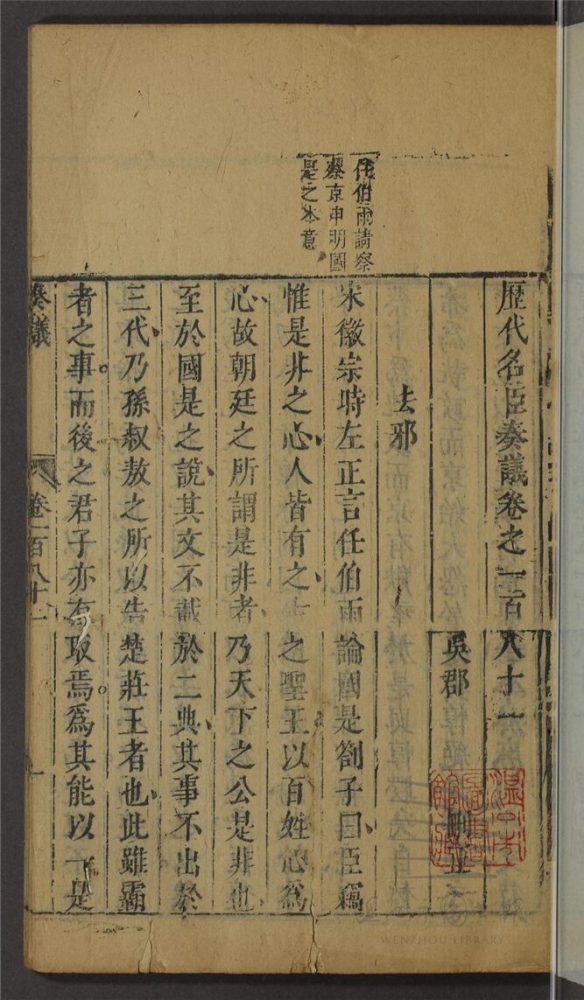 歷代名臣奏議卷之一百八十一
吳郡
刪正
去邪
宋徽宗時左正言任伯雨論國是劄子曰臣竊
惟是非之心人皆有之
之聖王以百姓心爲
心故朝廷之所謂是非者乃天下之公是非也
至於國是之說其文不載於二典其事不出於
三代乃孫叔敖之所以告楚莊王者也此雖霸
者之事而後之君子亦有取焉爲其能以一是
任伯雨請察
蔡京申明國
是之本意
奏議
卷一百八十一
一
WENZHOU LIBRARY